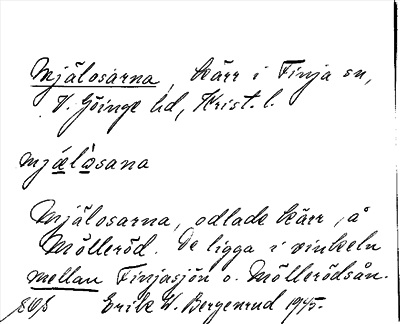 Mjälosarna, kärr i Finja sn,
V. Göinge hd, Krist. l.
mjælåsana
Mjälosarna, odlade kärr, å
Mölleröd. De ligga i vinkeln
mellan Finjasjön o. Möllerödsån.
Erik W. Bergenrud 1945.